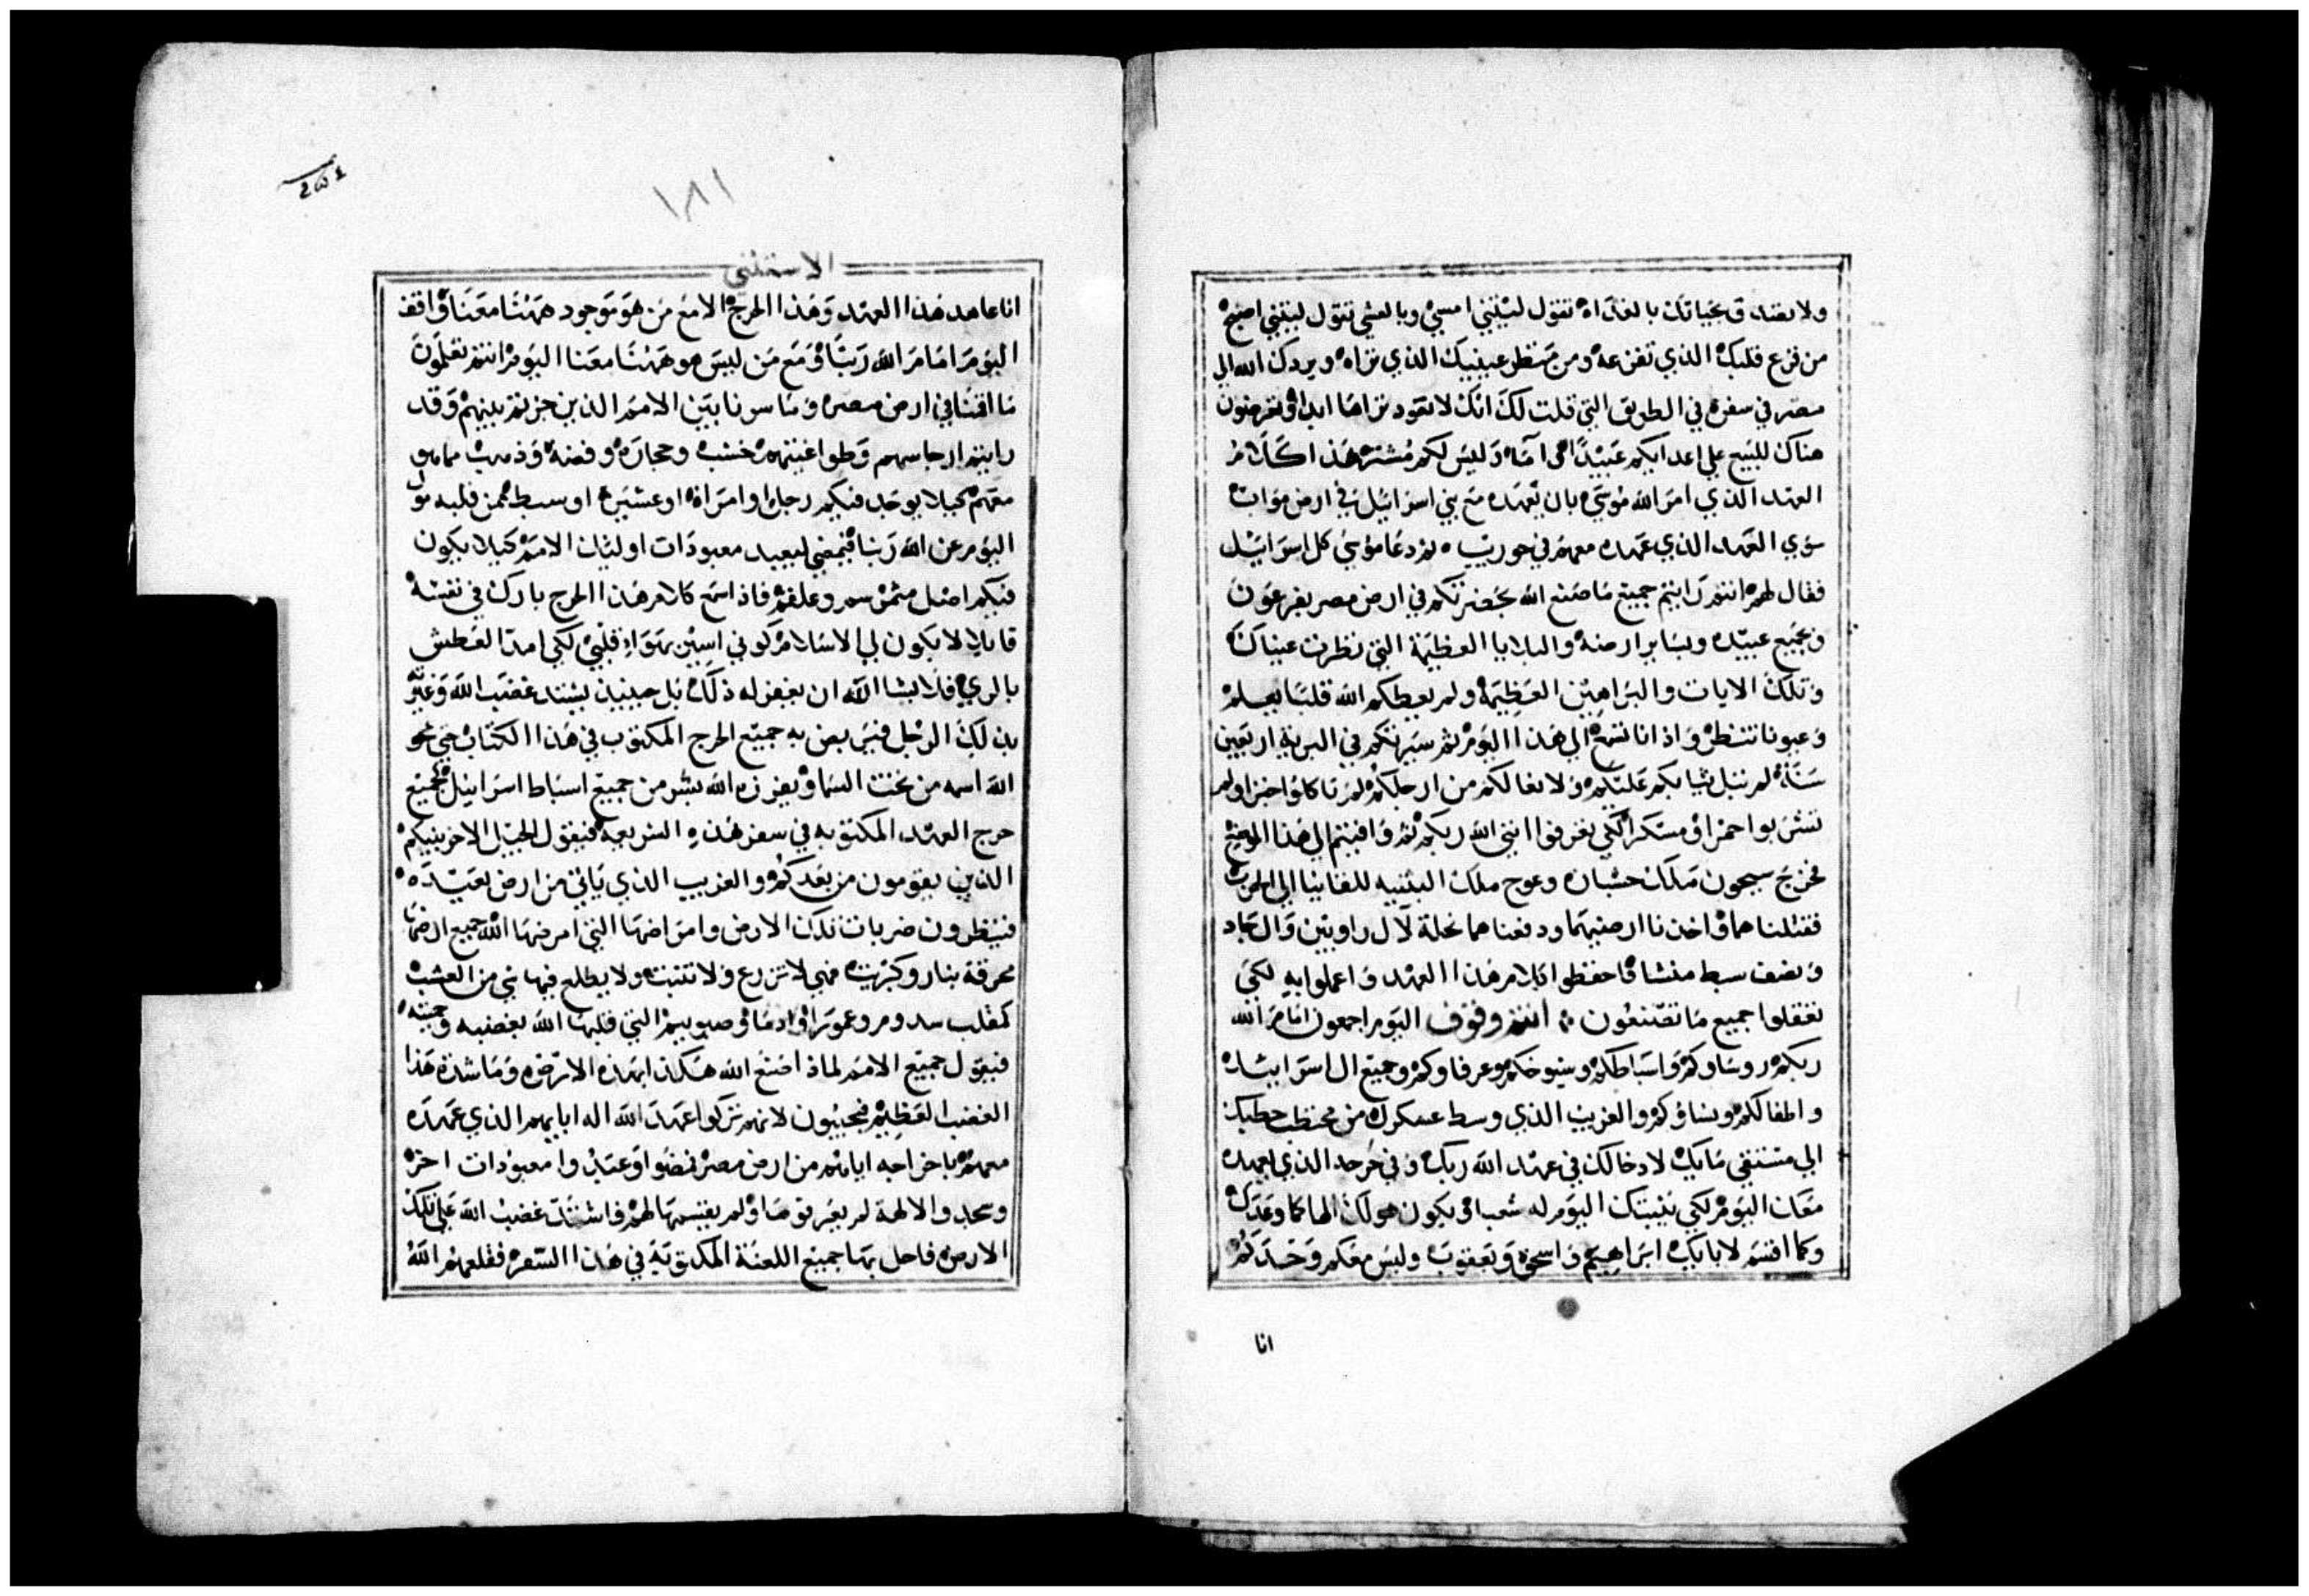 ولا تصدق بحياتك بالغداه تقول ليتني امسي وبالعشي تقول ليتني اصبح
من فزع قلبك الذي تفزعه ومن منظر عينيك الذي تراه ويردك الله الي
مصر في سفن في الطريق التي قلت لك انك لا تعود تراها ابدا وتعرضون
هناك للبيع علي اعدايكم عبيدا وامآء وليس لكم مشتر هذا كلام
العهد الذي امر الله موسي بان يعهده مع بني اسراييل في ارض مواب
سوي العهد الذي عهده معهم في حوريب ثم دعا موسي كل اسراييل
فقال لهم انتم رايتم جميع ما صنع الله بحضرتكم في ارض مصر بفرعون
وبجميع عبيده وبساير ارضه والبلايا العظيمة التي نظرت عيناك
وتلك الايات والبراهين العظيمه ولم يعطكم الله قلبا يعلم
وعيونا تنظر واذانا تسمع الي هذا اليوم ثم سيرتكم في البرية اربعين
سنة لم تبل ثيابكم عليكم ولا نعالكم من ارجلكم لم تاكلوا خبزا ولم
تشربوا خمرا ومسكرا لكي تعرفوا انني الله ربكم ثم وافيتم الي هذا الموضع
فخرج سيحون ملك حشبان وعوج ملك البثنيه للقاينا الي الحرب
فقتلناهما واخذنا ارضيهما ودفعناهما نحلة لآل راوبين وآل جاد
ونصف سبط منشا فاحفظوا كلام هذا العهد واعملوا به لكي
تعقلوا جميع ما تصنعون انتم وقوف اليوم اجمعون امام الله
ربكم روساوكم واسباطكم وشيوخكم وعرفاوكم وجميع ال اسراييل
واطفالكم ونساوكم والغريب الذي وسط عسكرك من محتطب حطبك
الي مستقي مايك لادخالك في عهد الله ربك وفي حرجه الذي يعهده
معك اليوم لكي يثبتك اليوم له شعبا ويكون هو لك الها كما وعدك
وكما اقسم لابايك ابراهيم واسحق ويعقوب وليس معكم وحدكم
انا
١٨١
الاستثني
انا عاهد هذا العهد وهذا الحرج الا مع من هو موجود ههنا معنا واقف
اليوم امام الله ربنا ومع من ليس هو ههنا معنا اليوم انتم تعلمون
ما اقمنا في ارض مصر وما سرنا بين الامم الذين جزتم بينهم وقد
رايتم ارجاسهم وطواغيتهم خشب وحجاره وفضة وذهب مما هو
معهم كيلا يوجد فيكم رجل او امراة او عشيرة او سبط ممن قلبه مول
اليوم عن الله ربنا فيمضي ليعبد معبودات اوليك الامم كيلا يكون
فيكم اصل مثمر سم وعلقم فاذا سمع كلام هذا الحرج بارك في نفسه
قايلا لا يكون لي الا سلام كوني اسير بهواء قلبي لكي امد العطش
بالري فلا يشا الله ان يغفر له ذلك بل حينيذ يشتد غضب الله وغيرته
بذلك الرجل فيربض به جميع الحرج المكتوب في هذا الكتاب حتي يمحو
الله اسمه من تحت السما ويفرزه الله بشر من جميع اسباط اسراييل كجميع
حرج العهد المكتوبه في سفر هذه الشريعه فيقول الجيل الاخر بنيكم
الذين يقومون من بعدكم والغريب الذي ياتي من ارض بعيده
فينظرون ضربات تلك الارض وامراضها التي امرضها الله جميع ارضها
محرقة بنار وكبريت فهي لا تزرع ولا تنبت ولا يطلع فيها شي من العشب
كمقلب سدوم وعمورا وادما وصبوييم التي قلبها الله بغضبه وحميته
فيقول جميع الامم لماذا صنع الله هكذا بهذه الارض وما شدة هذا
الغضب العظيم فيجيبون لانهم تركوا عهد الله اله ابايهم الذي عهده
معهم باخراجه اياهم من ارض مصر فمضوا وعبدوا معبودات اخر
وسجدوا لالهة لم يعرفوها ولم يقسمها لهم فاشتد غضب الله علي تلك
الارض فاحل بها جميع اللعنة المكتوبة في هذا السفر فقلعهم الله